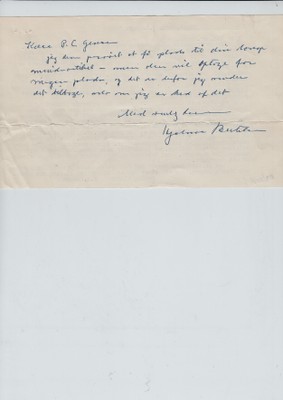 Kære P. C. Jensen
jeg har prøvet at få plads til din
men den vil optage for
megen plads, og det er derfor jeg sender
det tilbage, selv om jeg er ked af det
Med venlig hilsen
Hjalmar